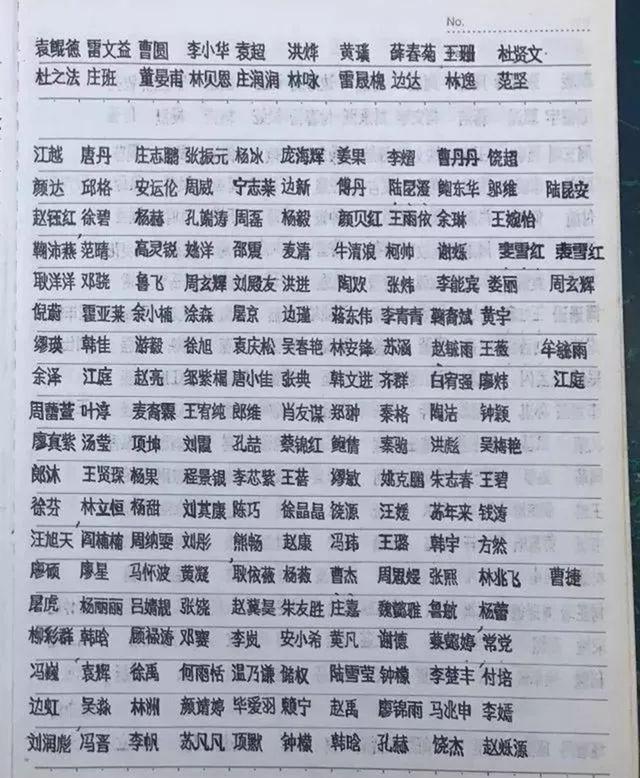 No.
袁鲲德 雷文益 曹圆 李小华 袁超 洪烨 黄瑱 薛春菊 王珊 杜贤文
杜之法 庄班 董晏甫 林贝恩 庄润润 林咏 雷晟槐 边达 林逸 范坚
江越 唐丹 庄志鹏 张振元 杨冰 庞海辉 姜果 李熠 曹丹丹 饶超
颜达 邱格 安运伦 周威 宁志莱 边新 傅丹 陆昆澄 鞠东华 邬维 陆昆安
赵钰红 徐碧 杨赫 孔端涛 周磊 杨毅 颜贝红 王雨依 余琳 王婉怡
鞠沛燕 范晴 高灵锐 姚洋 邵霞 麦清 牛清浪 柯帅 谢烁 裴雪红 裴雪红
耿洋洋 邓骁 鲁飞 周玄辉 刘殿友 洪进 陶欢 张炜 李能宾 娄丽 周玄辉
倪蔚 霍亚莱 余小楠 涂淼 屠京 边瑾 蒋东伟 李青青 鞠育斌 黄宇
缪瑛 韩佳 游毅 徐旭 袁庆松 吴春艳 林安锋 苏涵 赵毓雨 王薇 牟毓雨
余泽 江庭 赵亮 邹紫楣 唐小佳 张典 韩文进 齐群 白宥强 廖炜 江庭
周蕾萱 叶淳 麦裔霖 王宥纯 郎维 肖友谋 郑翀 秦格 陶洁 钟颖
廖真紫 汤莹 项坤 刘霞 孔喆 蔡锦红 鲍倩 秦驰 洪彪 吴梅艳
郎沐 王贤琛 杨果 程景银 李芯紫 王菩 缪敏 姚克鹏 朱志春 王碧
徐芬 林立恒 杨甜 刘其康 陈巧 徐晶晶 饶源 汪媛 苏年来 钱涛
汪旭天 阎楠楠 周纳雯 刘彤 熊畅 赵康 冯玮 王璐 韩宇 方然
廖硕 廖星 马怀波 黄凝 耿依薇 杨薇 曹杰 周思嫚 张熙 林兆飞 曹捷
屠虎 杨丽丽 吕嫱靓 张饶 赵冀昊 朱友胜 庄嘉 魏懿雅 鲁航 杨蕾
柳彩群 韩晗 顾禄涛 邓赛 李岚 安小希 莫凡 谢德 蔡懿婷 常党
冯巍 袁辉 徐禹 何雨恬 温乃谦 储权 陆雪莹 钟檬 李楚丰 付培
边虹 吴淼 林洲 颜靖婷 毕爱羽 赖宁 赵禹 廖锦雨 马兆申 李嫣
刘润彪 冯晋 李帆 苏凡凡 项默 钟檬 韩晗 孔赫 饶杰 赵烁源